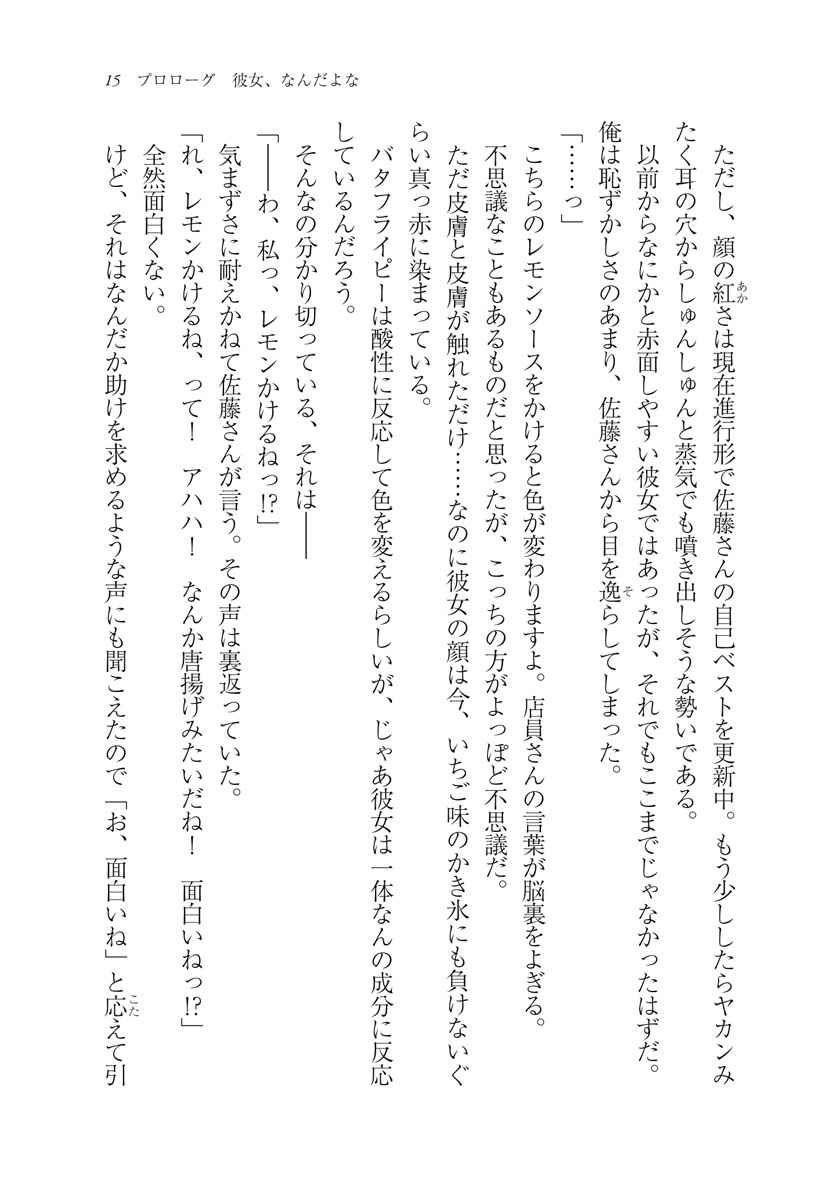 15 プロローグ 彼女、なんだよな
ただし、顔の紅さは現在進行形で佐藤さんの自己ベストを更新中。もう少ししたらヤカンみ
たく耳の穴からしゅんしゅんと蒸気でも噴き出しそうな勢いである。
以前からなにかと赤面しやすい彼女ではあったが、それでもここまでじゃなかったはずだ。
俺は恥ずかしさのあまり、佐藤さんから目を逸らしてしまった。
「……っ」
こちらのレモンソースをかけると色が変わりますよ。店員さんの言葉が脳裏をよぎる。
不思議なこともあるものだと思ったが、こっちの方がよっぽど不思議だ。
ただ皮膚と皮膚が触れただけ……なのに彼女の顔は今、いちご味のかき氷にも負けないぐ
らい真っ赤に染まっている。
バタフライピーは酸性に反応して色を変えるらしいが、じゃあ彼女は一体なんの成分に反応
しているんだろう。
そんなの分かり切っている、それは――
「――わ、私っ、レモンかけるねっ!?」
気まずさに耐えかねて佐藤さんが言う。その声は裏返っていた。
「れ、レモンかけるね、って！　アハハ！　なんか唐揚げみたいだね！　面白いねっ!?」
全然面白くない。
けど、それはなんだか助けを求めるような声にも聞こえたので「お、面白いね」と応えて引
あか
そ
こた